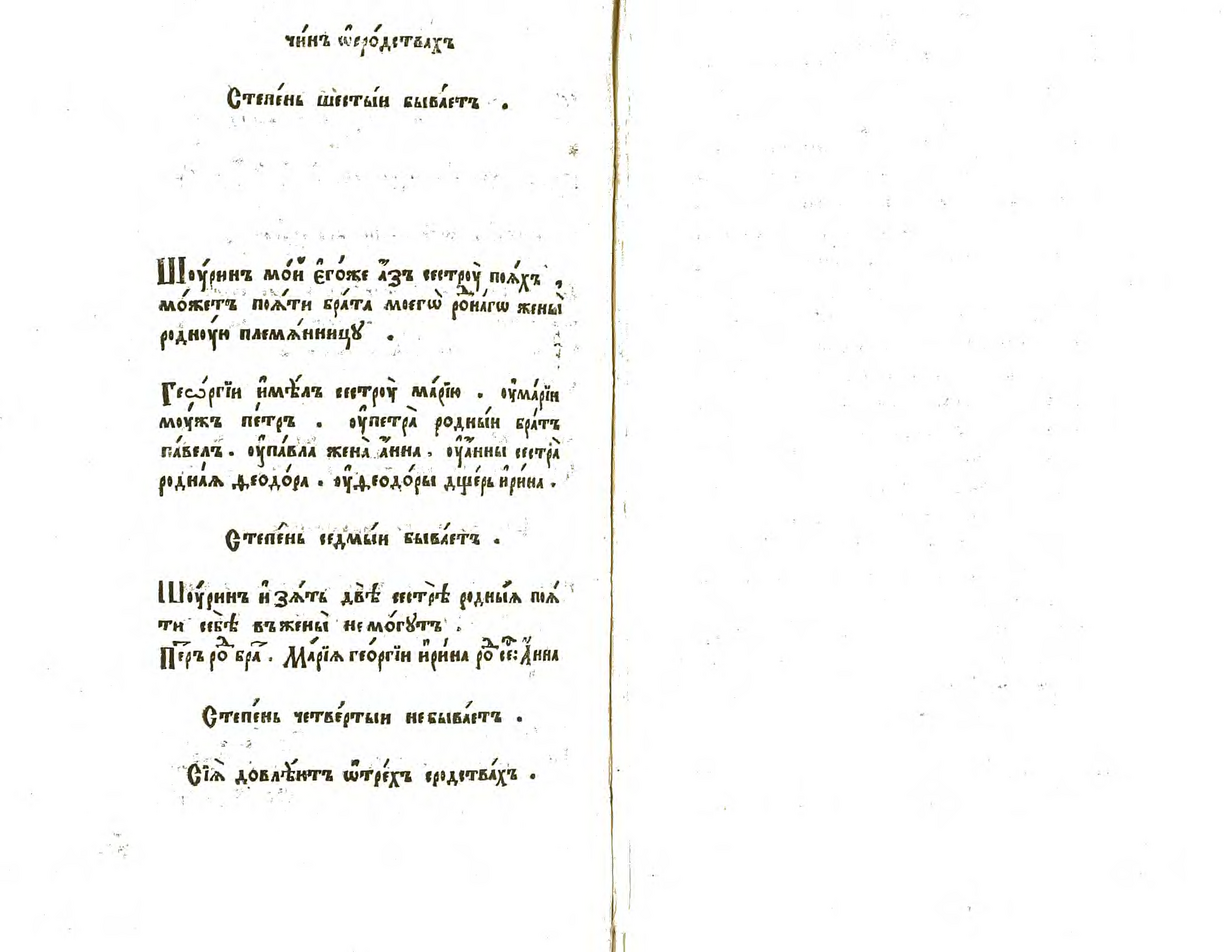 чи́нъ ѡ҆сро́дствахъ
Степе́нь ше́стыи быва́етъ .
Шоу́ринъ мо́й є҆го́же а҆́зъ сестроу̀ поя́хъ ,
мо́жетъ поꙗ́ти бра́та моегѡ̀ роⷣна́гѡ жены̀
родноую племѧ́нницꙋ .
Геѡ́ргїи и҆мѣ́лъ сестроу̀ ма́рїю . оу҆ма́рїи
моу́жъ пе́тръ . оу҆петра̀ родны́и бра́тъ
па́велъ . оу҆па́вла жена̀ а҆́нна . оу҆а҆́нны сестра̀
родна́ѧ ѳеодо́ра . оу҆ѳеодо́ры дщерь и҆ри́на .
Степе́нь седмы́и быва́етъ .
Шоу́ринъ и҆ зѧ́ть двѣ̀ сестрѣ̀ родны́ѧ поѧ́
ти себѣ̀ въжены̀ немо́гꙋтъ .
Пе́тръ роⷣ бра́т . Ма́рїѧ гео́ргїи и҆ри́на роⷣ сеⷭ: А҆́нна
Степе́нь четве́ртыи небыва́етъ .
Сїѧ̀ довлѣ́ютъ ѡ҆тре́хъ сродства́хъ .